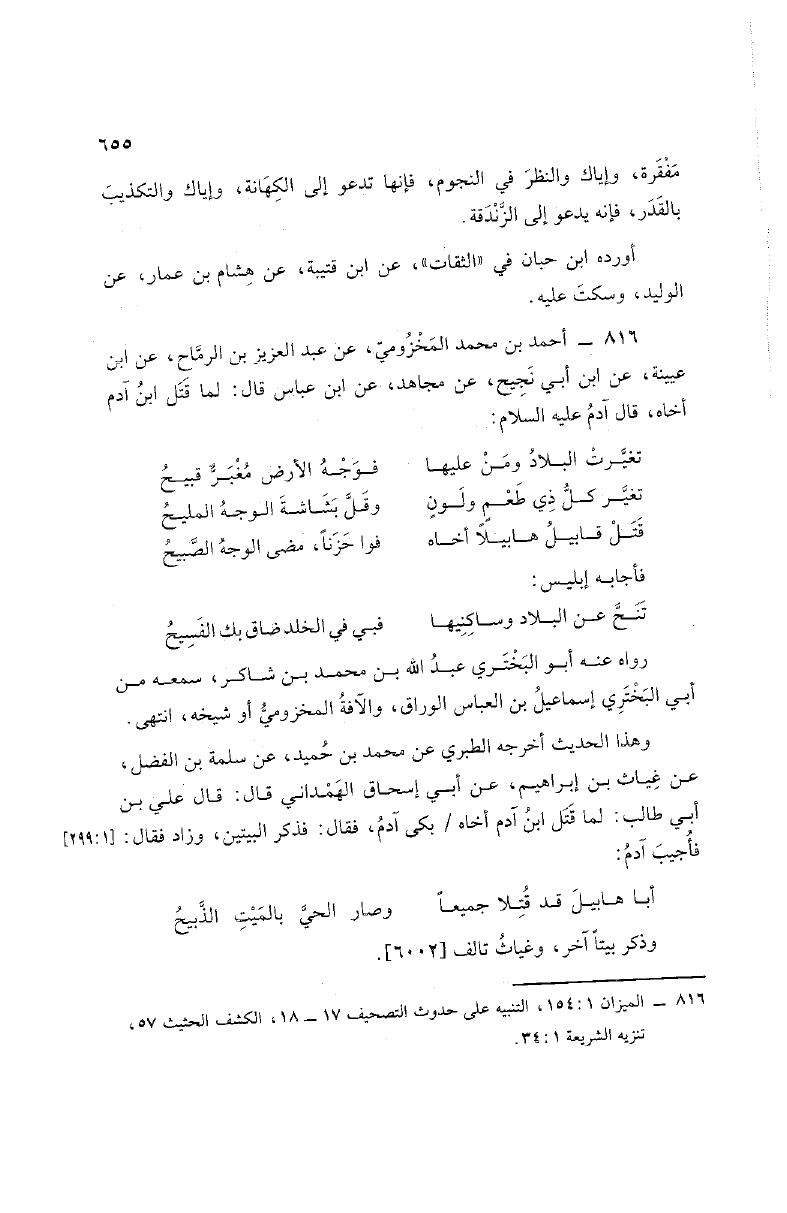 ٦٥٥
مَفْقَرة، وإياك والنظرَ في النجوم، فإنها تدعو إلى الكِهَانة، وإياك والتكذيبَ
بالقَدَر، فإنه يدعو إلى الزَّنْدَقة.
أورده ابن حبان في «الثقات»، عن ابن قتيبة، عن هِشام بن عمار، عن
الوليد، وسكتَ عليه.
٨١٦ ــ أحمد بن محمد المَخْزُوميّ، عن عبد العزيز بن الرمَّاح، عن ابن
عيينة، عن ابن أبي نَجِيح، عن مجاهد، عن ابن عباس قال: لما قَتَل ابنُ آدم
أخاه، قال آدمُ عليه السلام:
تغيَّرتْ البـلادُ ومَـنْ عليهـا فـوَجْـهُ الأرض مُغْبَـرٌّ قبيـحُ
تغيَّـر كـلُّ ذِي طَعْـمٍ ولَـونٍ وقَـلَّ بَشَـاشـةَ الـوجـهُ المليـحُ
قَتَـلْ قـابيـلُ هـابيـلًا أخـاه فوا حَزَناً، مضى الوجهُ الصَّبِيحُ
فأجابـه إبليـس:
تَنَـحَّ عـن البـلاد وسـاكِنِيهـا فبي في الخلد ضاق بك الفَسِيحُ
رواه عنـه أبـو البَخْتَـري عبـدُ الله بـن محمـد بـن شـاكـر، سمعـه مـن
أبي البَخْتَرِي إسماعيلُ بن العباس الوراق، والآفةُ المخزوميُّ أو شيخه، انتهى.
وهذا الحديث أخرجه الطبري عن محمد بن حُميد، عن سلمة بن الفضل،
عـن غِيـاث بـن إبـراهيـم، عـن أبـي إسحـاق الهَمْـدانـي قـال: قـال علـي بـن
أبي طالب: لما قَتَل ابنُ آدم أخاه / بكى آدمُ، فقال: فذكر البيتين، وزاد فقال: [١:‏٢٩٩]
فأُجيبَ آدمُ:
أبـا هـابيـلَ قـد قُتِـلا جميعـاً وصـار الحيُّ بالمَيْتِ الذَّبيحُ
وذكر بيتاً آخر، وغياثُ تالف [٦٠٠٢].
٨١٦ ــ الميزان ١:‏١٥٤، التنبيه على حدوث التصحيف ١٧ ــ ١٨، الكشف الحثيث ٥٧،
تنزيه الشريعة ١:‏٣٤.